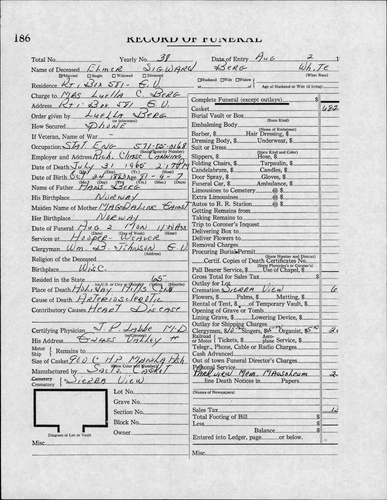 186
RECORD OF FUNERAL
Total No. Yearly No. 38 Date of Entry Aug 2
Name of Deceased Elmer Sigward Berg White
Married Single Widowed Divorced (What Race)
Residence Rt. 1 Box 571 - G.V.
Husband Wife Widow of Age of Husband or Wife (if living)
Charge to Mrs Luella C Berg
Address Rt. 1 Box 571 G.V.
Order given by Luella Berg
How Secured Phone
Veteran of War
Occupation Stat Eng
(Social Security Number)
Employer and Address Rich. Chase Canning
Date of Death July 31 1965
Date of Birth
Name of Father Hans Berg
His Birthplace Norway
Maiden Name of Mother Magdaline
Her Birthplace Norway
Date of Funeral Aug 2 Mon 11 AM
Services at Hooper-Weaver
Clergyman Wm. D. Johnson G.V.
Religion of the Deceased
Birthplace Wisc.
Resided in the State 65
Place of Death Holiday Hills Conv
Cause of Death Arteriosclerotic
Contributory Causes Heart Disease
Certifying Physician M.D.
His Address Grass Valley
Motor Ship Remains to
Size of Casket
Manufactured by Casket
Cemetery Crematory Sierra View
Lot No.
Grave No.
Section No.
Block No.
Owner
Diagram of Lot or Vault
Misc.
Complete Funeral (except outlays) $
Casket 682
Burial Vault or Box
(State Kind)
Embalming Body
(Name of Embalmer)
Barber, $ Hair Dressing, $
Dressing Body, $ Underwear, $
Suit or Dress
(State Kind and Color)
Slippers, $ Hose, $
Folding Chairs, $ Tarpaulin, $
Candelabrum, $ Candles, $
Door Spray, $ Gloves, $
Funeral Car, $ Ambulance, $
Limousines to Cemetery @ $
Extra Limousines @ $
Autos to R. R. Station @ $
Getting Remains from
Taking Remains to
Trip to Coroner's Inquest
Delivering Box to
Deliver Flowers to
Removal Charges
Procuring Burial Permit
(State Number and District)
Certif. Copies of Death Certificates No.
(State Physician's or Coroner's)
Pall Bearer Service, $ Use of Chapel, $
Gross Total for Sales Tax $
Outlay for Lot
Cremation Sierra View 6
Flowers, $ Palms, $ Matting, $
Rental of Tent, $ Temporary Vault, $
Opening of Grave or Tomb $
Lining Grave, $ Lowering Device, $
Outlay for Shipping Charges
Clergyman, $ Singers, $ Organist, $
Railroad or Motor Tickets, $ Aeroplane Service, $
Telegr., Phone, Cable or Radio Charges
Cash Advanced
Out of town Funeral Director's Charges
Personal Service
Park View Mem. Mausoleum 2
line Death Notices in Papers
(Names of Newspapers)
Sales Tax
Total Footing of Bill $
Less $
Balance $
Entered into Ledger, page or below.
Misc.